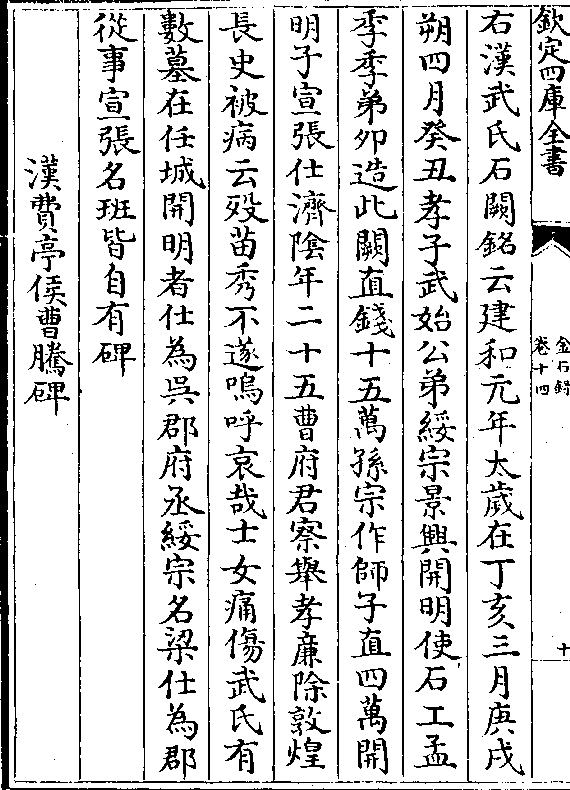 欽定四庫全書
金石錄
卷十四
十
右漢武氏石闕銘云建和元年太歲在丁亥三月庚戌
朔四月癸丑孝子武始公弟綏宗景興開明使石工孟
季季弟卯造此闕直錢十五萬孫宗作師子直四萬開
明子宣張仕濟陰年二十五曹府君察舉孝廉除敦煌
長史被病云歿苗秀不遂嗚呼哀哉士女痛傷武氏有
數墓在任城開明者仕為吳郡府丞綏宗名梁仕為郡
從事宣張名班皆自有碑
漢費亭侯曹騰碑